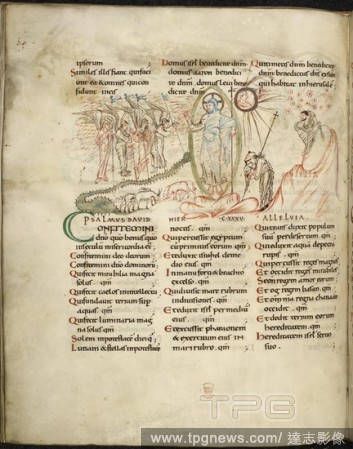 ipsorum
Similes illis fiant qui faciunt
ea & omnes qui confidunt
in eis
Domus isrl benedicite dnm
Domus aaron benedicite
dnm. domus leui benedicite
dnm
Qui timetis dnm benedicite
dnm benedictus dns ex sion
qui habitat in hierusalem
PSALMUS DAVID
CONFITEMINI
dno quo bonus quo
in seculū misericordia ei
Confitemini deo deorum
Confitemini dno dominorū
Qui fecit mirabilia magna
solus. qm̄
Qui fecit caelos in intellectu
Qui fundauit terram super
aquas. qm̄
Qui fecit luminaria magna
solus. qm̄
Solem in potestate diei q̄
Lunam & stellas in potestatē
noctis. qm̄
Qui percussit egyptum
cum primitiuis eorum. qm̄
Et eduxit israhel de medio
eius. qm̄
In manu forti & brachio
excelso. qm̄
Qui diuisit mare rubrum
in diuisiones. qm̄
Et eduxit isrl per mediū
eius. qm̄
Et excussit pharaonem
& exercitum eius in
mari rubro. qm̄
ALLELUIA
Qui transduxit populum
suū per desertum. qm̄
Qui eduxit aquā de petra
rupis. qm̄
Qui percussit reges magnos
Et occidit reges mirabiles
Seon regem amorreorum
Et og regem basan. qm̄
Et omnia regna chanaan
occidit. qm̄
Et dedit terram eorum
hereditatem. qm̄
Hereditatem isrl seruo
suo.
TPG
www.tpgnews.com/ 達志影像